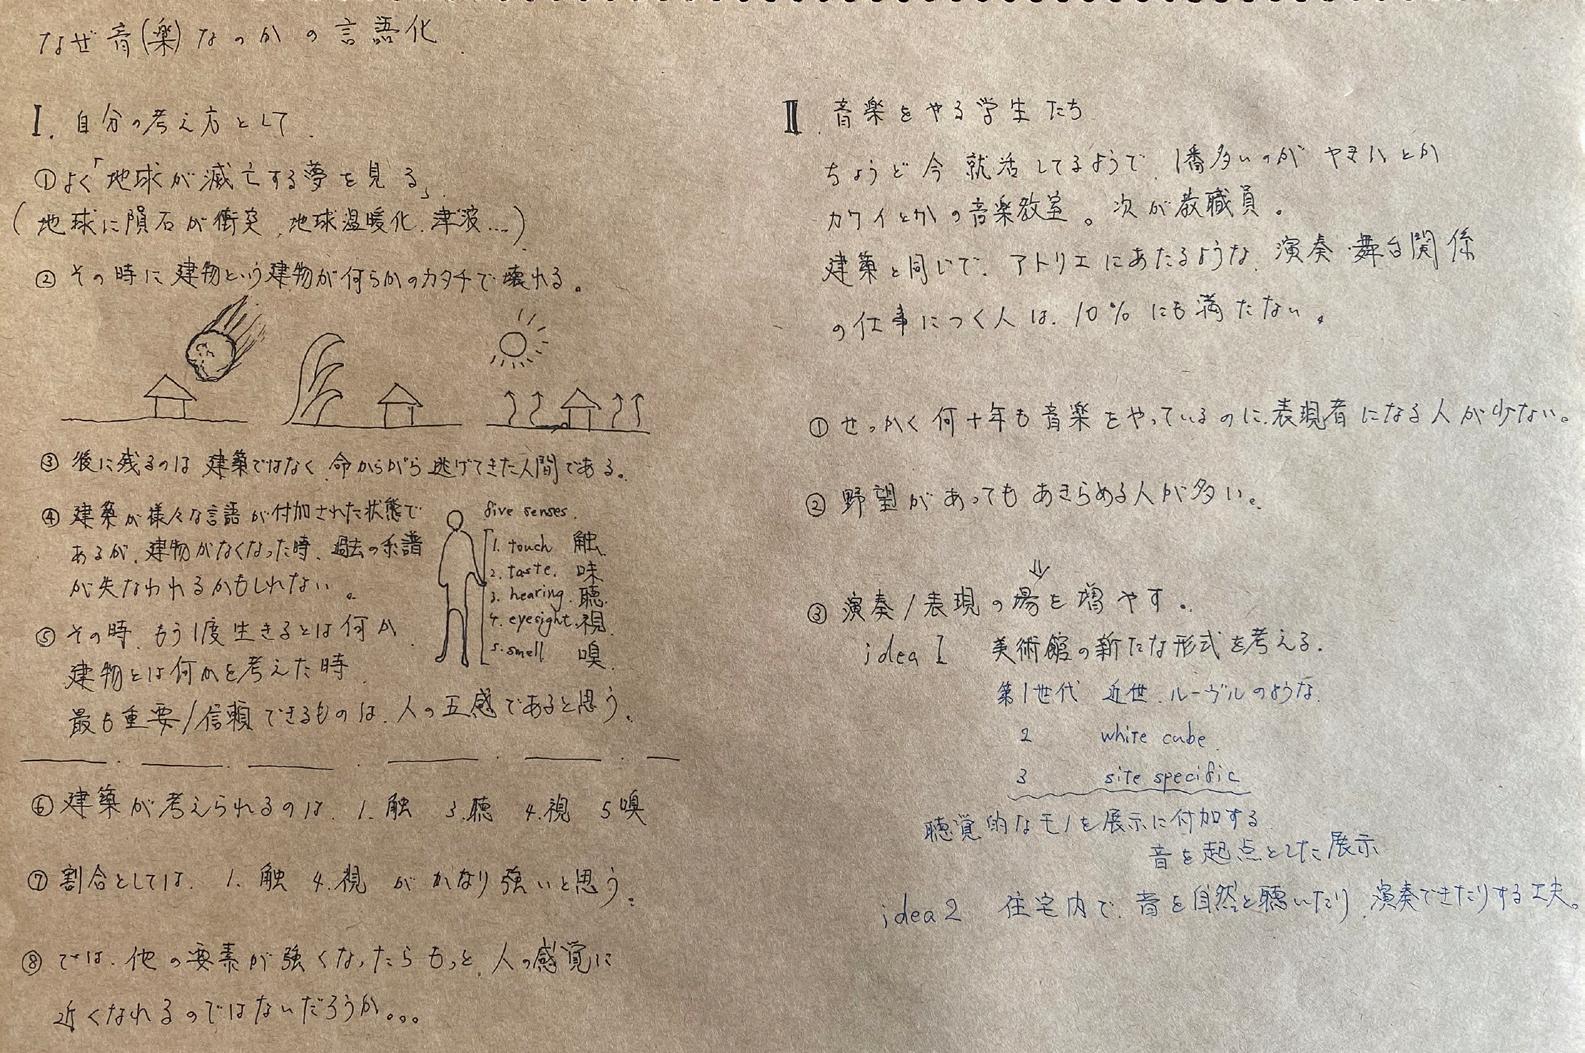 なぜ音(楽)なのかの言語化
I. 自分の考え方として.
①よく「地球が滅亡する夢を見る」
(地球に隕石が衝突、地球温暖化、津波...)
② その時に建物という建物が何らかのカタチで壊れる。
③ 後に残るのは 建築ではなく、命からがら逃げてきた人間である。
④ 建築が様々な言語が付加された状態で
あるが、建物がなくなった時、過去の系譜
が失なわれるかもしれない。
five senses.
1. touch 触
2. taste. 味
3. hearing. 聴
4. eyesight. 視
5. smell 嗅
⑤ その時、もう1度生きるとは何か
建物とは何かを考えた時
最も重要/信頼できるものは、人の五感であると思う。
⑥ 建築が考えられるのは、1. 触 3. 聴 4. 視 5 嗅
⑦ 割合としては、1. 触 4. 視 がかなり強いと思う。
⑧ では、他の要素が強くなったらもっと、人の感覚に
近くなれるのではないだろうか。。。
II. 音楽をやる学生たち
ちょうど今就活してるようで、1番多いのが ヤマハとか
カワイとかの音楽教室。次が教職員。
建築と同じで、アトリエにあたるような、演奏・舞台関係
の仕事につく人は、10%にも満たない。
① せっかく何十年も音楽をやっているのに、表現者になる人が少ない。
② 野望があってもあきらめる人が多い。
⇓
③ 演奏/表現の場を増やす。
idea 1 美術館の新たな形式を考える.
第1世代 近世、ルーヴルのような
2 white cube
3 site specific
聴覚的なモノを展示に付加する
音を起点とした展示
idea 2 住宅内で、音を自然と聴いたり、演奏できたりする工夫。